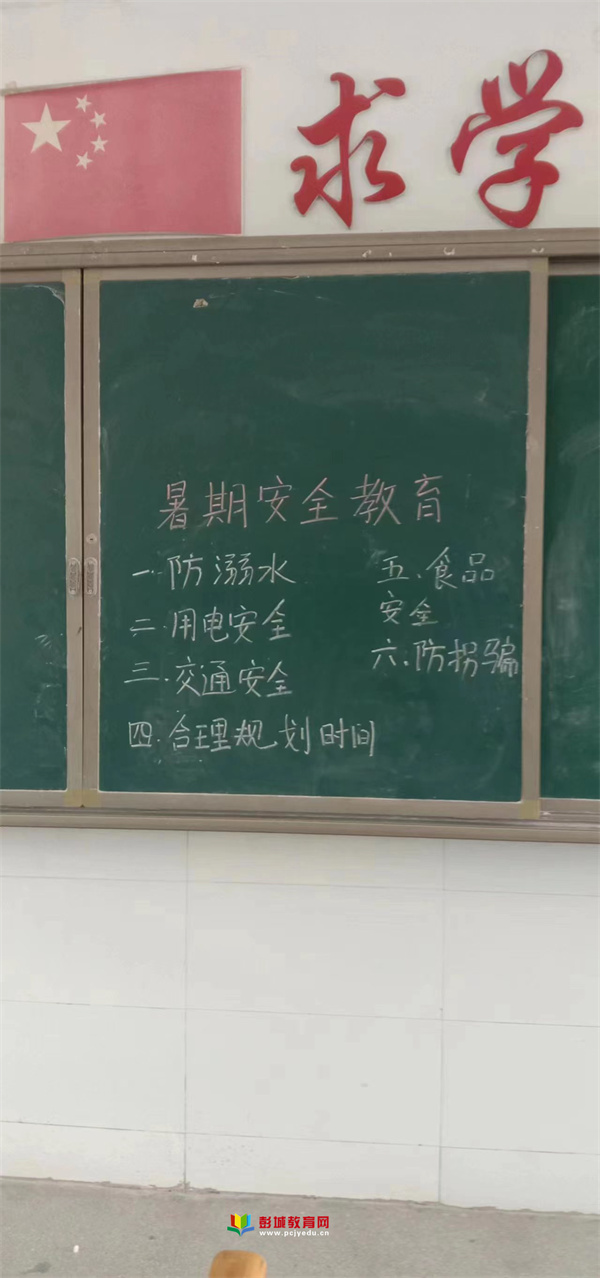 求学
暑期安全教育
一.防溺水
二.用电安全
三.交通安全
四.合理规划时间
五.食品
安全
六.防拐骗
彭城教育网
www.pcjyedu.cn